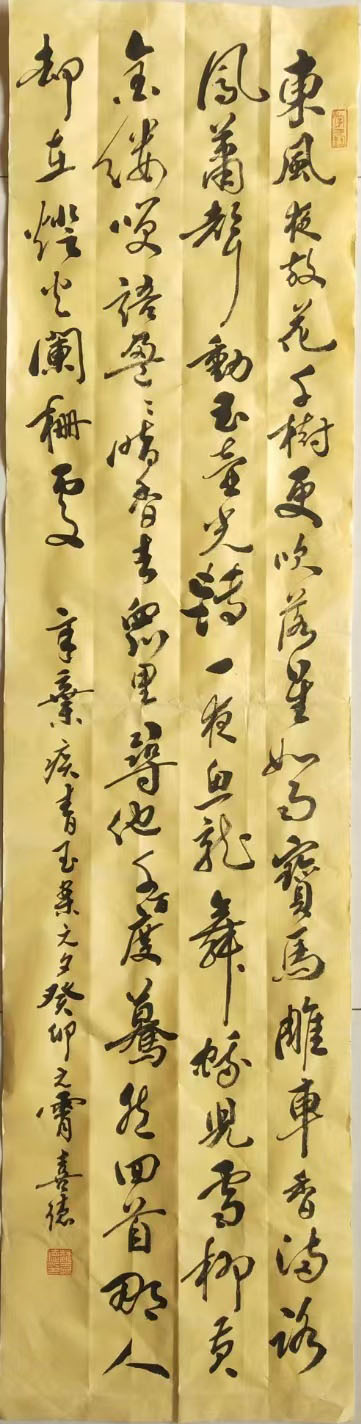 東風夜放花千樹更吹落星如雨寳馬雕車香滿路
鳳蕭聲動玉壺光轉一夜魚龍舞蛾兒雪柳黃
金缕笑語盈盈暗香去眾里尋他千百度驀然回首那人
却在燈火闌珊處
辛棄疾青玉案元夕癸卯元宵喜德